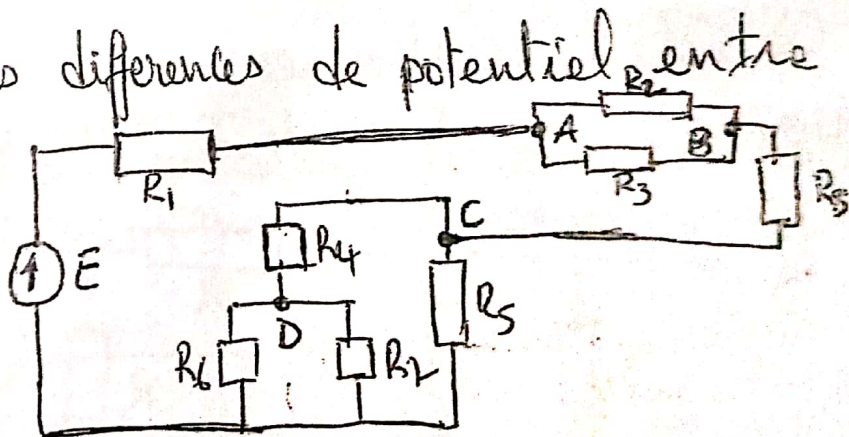 s differences de potentiel entre
R2
A
B
R1
R3
R5
C
R4
E
R5
D
R6
R2